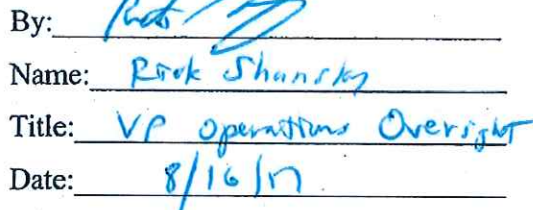 By:
Name: Rick Shansky
Title: VP Operations Oversight
Date: 8/16/17